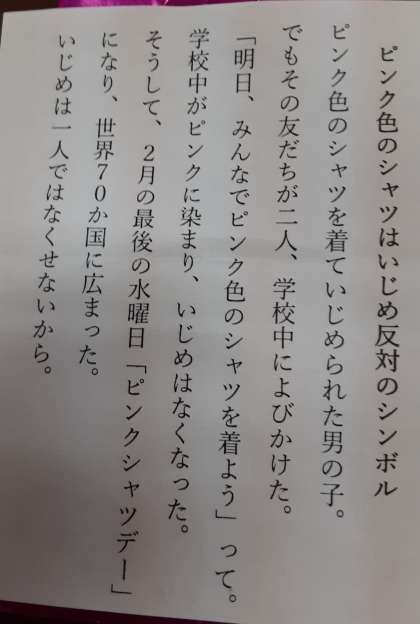 ピンク色のシャツはいじめ反対のシンボル
ピンク色のシャツを着ていじめられた男の子。
でもその友だちが二人、学校中によびかけた。
「明日、みんなでピンク色のシャツを着よう」って。
学校中がピンクに染まり、いじめはなくなった。
そうして、２月の最後の水曜日「ピンクシャツデー」
になり、世界７０か国に広まった。
いじめは一人ではなくせないから。